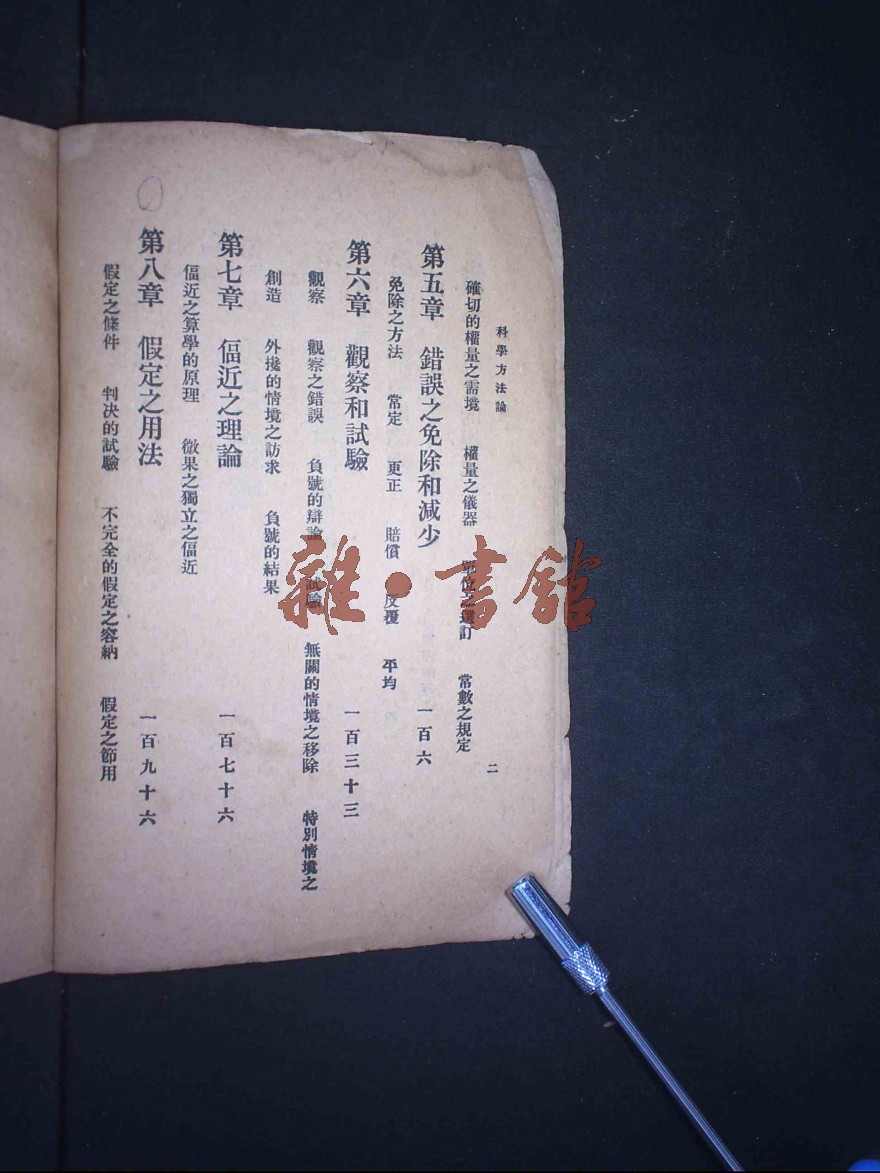 科學方法論
二
確切的權量之需境 權量之儀器 單位之選訂 常數之規定
第五章 錯誤之免除和減少 一百六
免除之方法 常定 更正 賠償 反覆 平均
第六章 觀察和試驗 一百三十三
觀察 觀察之錯誤 負號的辯論 試驗 無關的情境之移除 特別情境之
創造 外擾的情境之訪求 負號的結果
第七章 偪近之理論 一百七十六
偪近之算學的原理 微果之獨立之偪近
第八章 假定之用法 一百九十六
假定之條件 判決的試驗 不完全的假定之容納 假定之節用
雜·書館